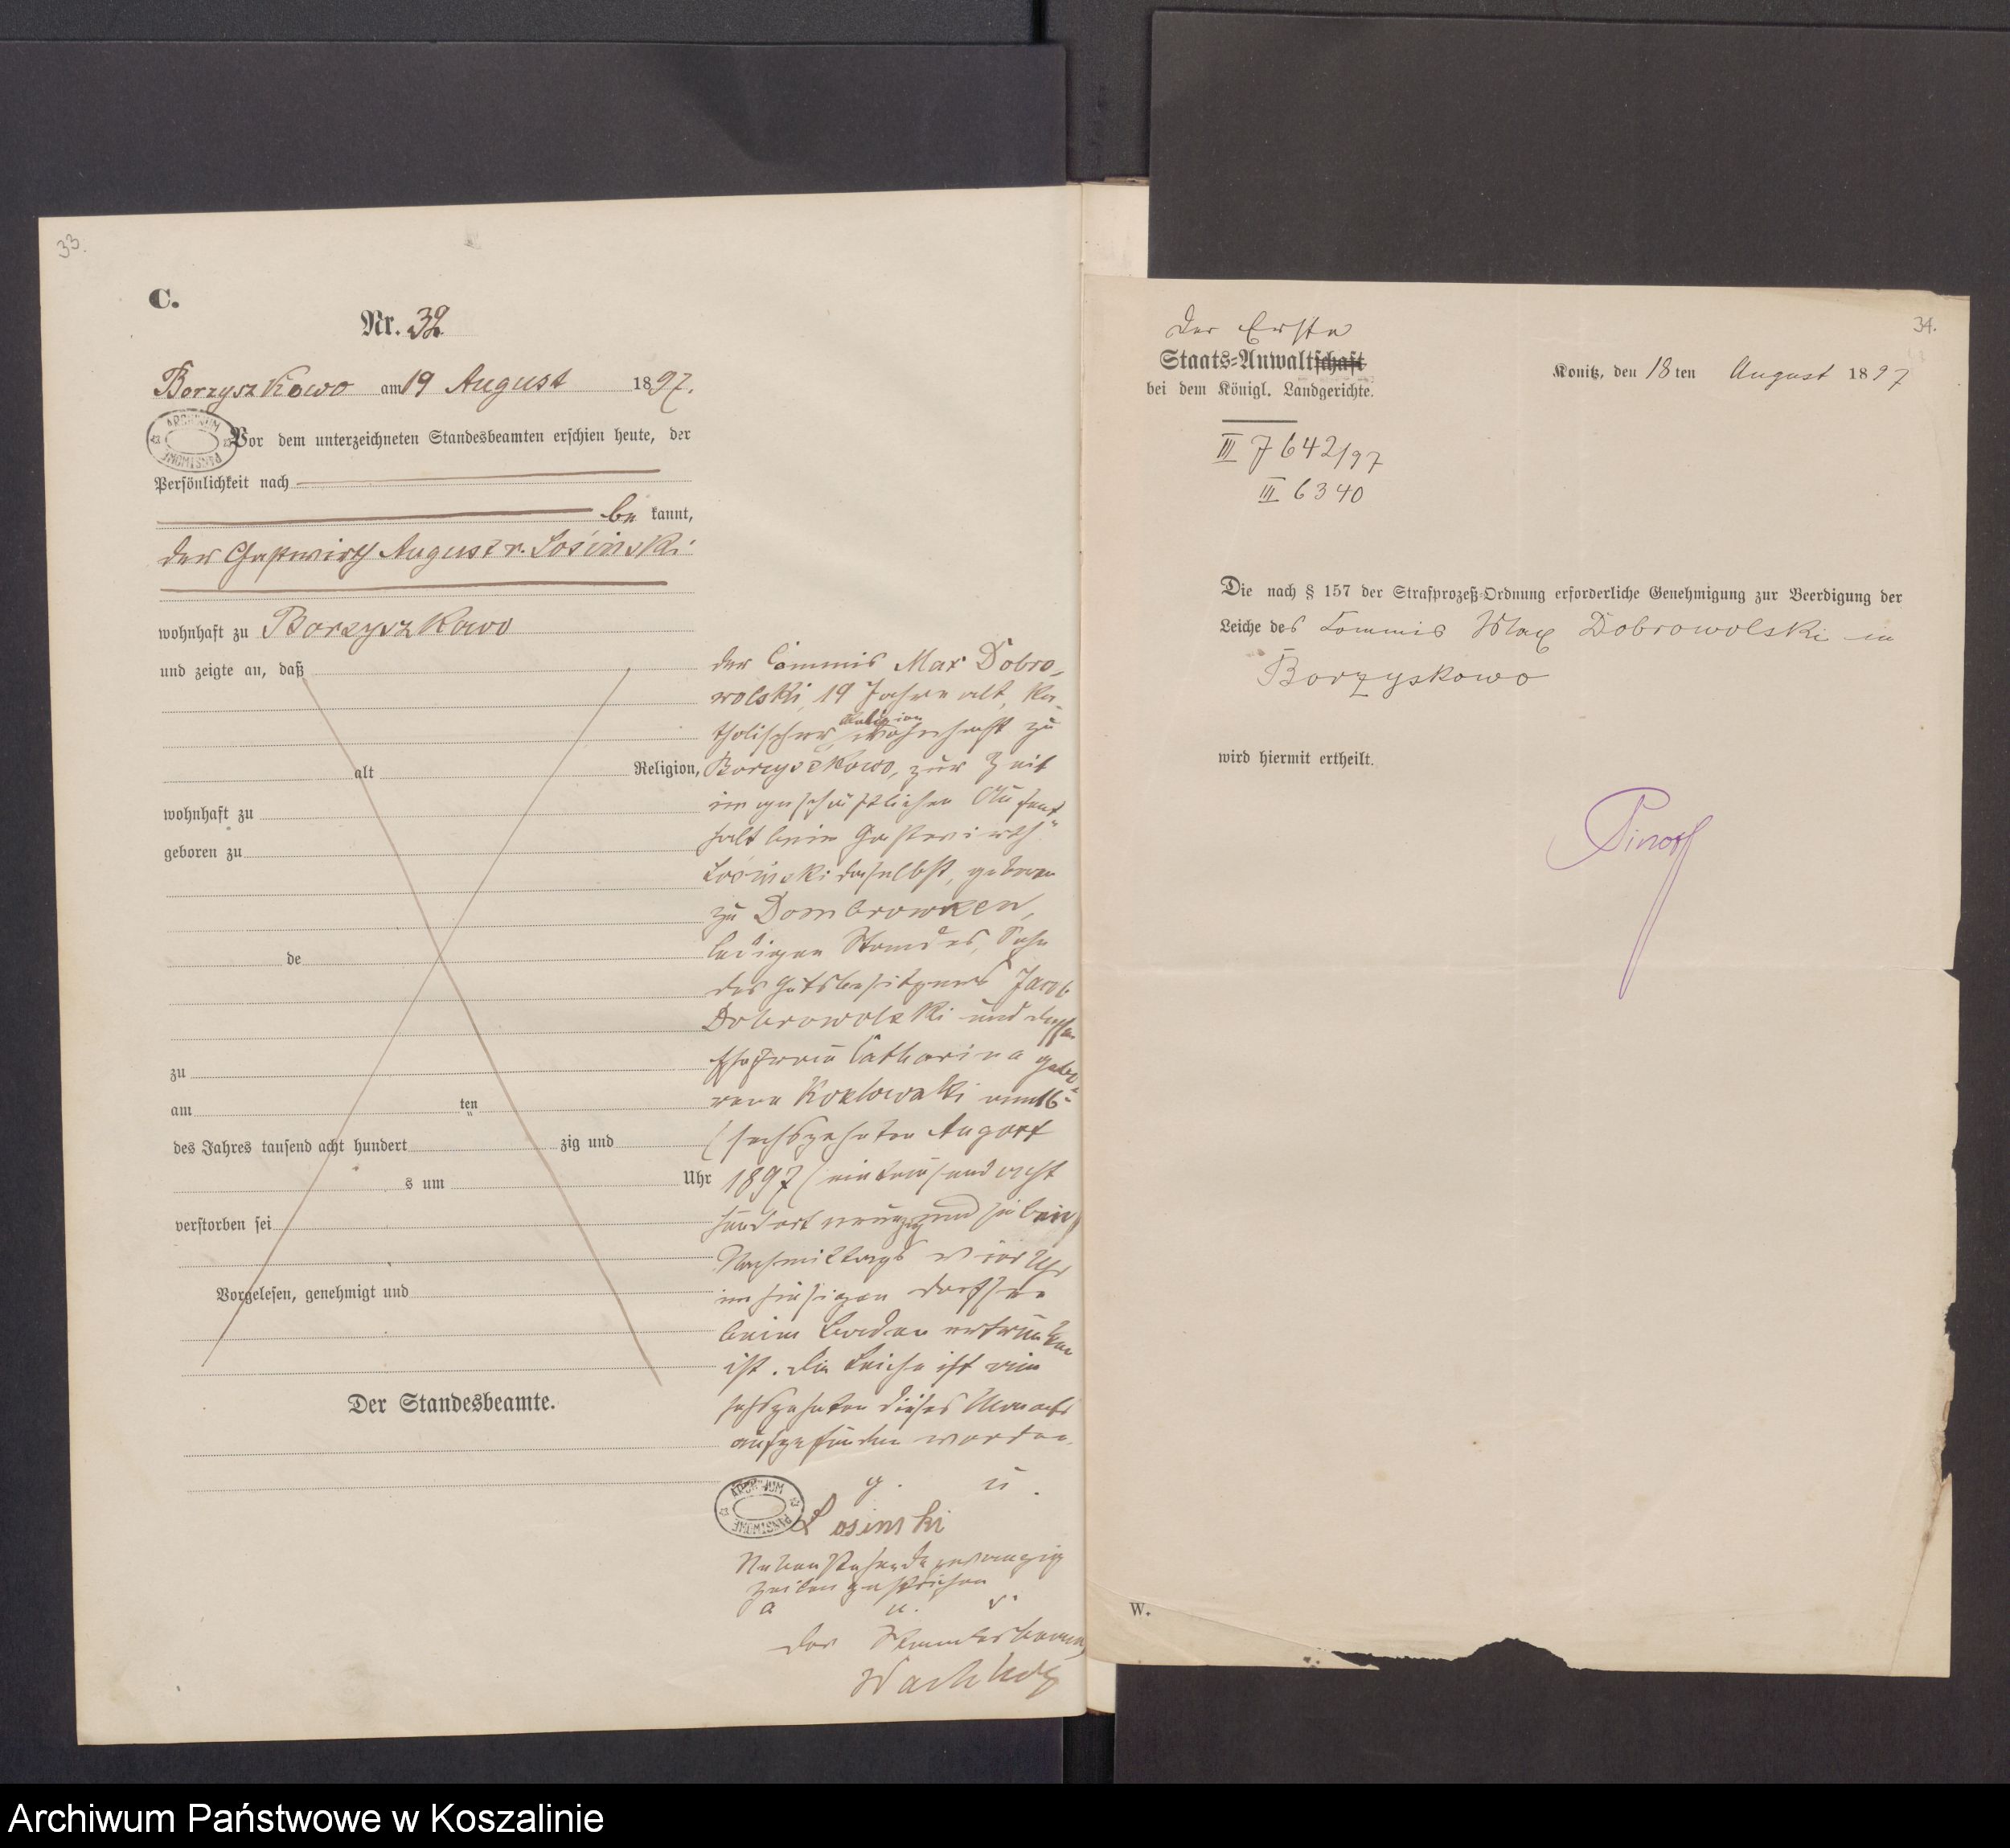 33.
C.
Nr. 32
Borzyszkowo am 19 August 1897.
ARCHIWUM PAŃSTWOWE
Vor dem unterzeichneten Standesbeamten erschien heute, der
Persönlichkeit nach
be kannt,
der Gastwirth August v. Łosiński
wohnhaft zu Borzyszkowo
und zeigte an, daß
alt Religion,
wohnhaft zu
geboren zu
de
zu
am ten
des Jahres tausend acht hundert zig und
s um Uhr
verstorben sei
Vorgelesen, genehmigt und
Der Standesbeamte.
der Commis Max Dobro-
wolski, 19 Jahre alt, ka-
tholischer Religion wohnhaft zu
Borzyszkowo, zur Zeit
im geschäftlichen Aufent-
halt beim Gastwirth
Łosiński daselbst, geboren
zu Dombrowken,
ledigen Standes, Sohn
des Gutsbesitzers Jacob
Dobrowolski und dessen
Ehefrau Catharina gebo-
rene am 16
(sechszehnten August
1897 (eintausend acht
hundert neunzig und sieben)
Nachmittags vier Uhr
im hiesigen Dorfsee
beim Baden ertrunken
ist. Die Leiche ist am
sechszehnten dieses Monats
aufgefunden worden.
g. u.
Losinski
ARCHIWUM PAŃSTWOWE
Nebenstehende zwanzig
Zeilen gestrichen
a u. s.
Der Standesbeamte
34.
Der Erste
Staats-Anwaltschaft
bei dem Königl. Landgerichte.
Konitz, den 18 ten August 1897
III J 642/97
III 6340
Die nach § 157 der Strafprozeß-Ordnung erforderliche Genehmigung zur Beerdigung der
Leiche des Commis Max Dobrowolski in
Borzyskowo
wird hiermit ertheilt.
W.
Archiwum Państwowe w Koszalinie